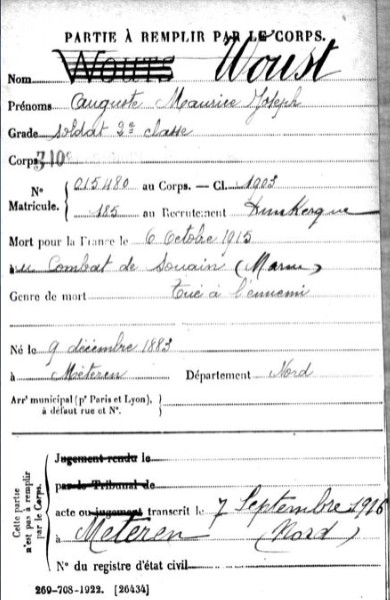 PARTIE À REMPLIR PAR LE CORPS.
Nom Wouts Woust
Prénoms Auguste Maurice Joseph
Grade soldat 2e classe
Corps 310e
N° Matricule. { 015480 au Corps. — Cl. 1903
185 au Recrutement Dunkerque
Mort pour la France le 6 Octobre 1915
au Combat de Souain (Marne)
Genre de mort Tué à l'ennemi
Né le 9 décembre 1883
à Méteren Département Nord
Arr' municipal (p' Paris et Lyon), à défaut rue et N°. {
Cette partie n'est pas à remplir par le Corps. {
Jugement rendu le
par le Tribunal de
acte ou jugement transcrit le 7 Septembre 1916
à Meteren (Nord)
N° du registre d'état civil
269-708-1922. [26434]